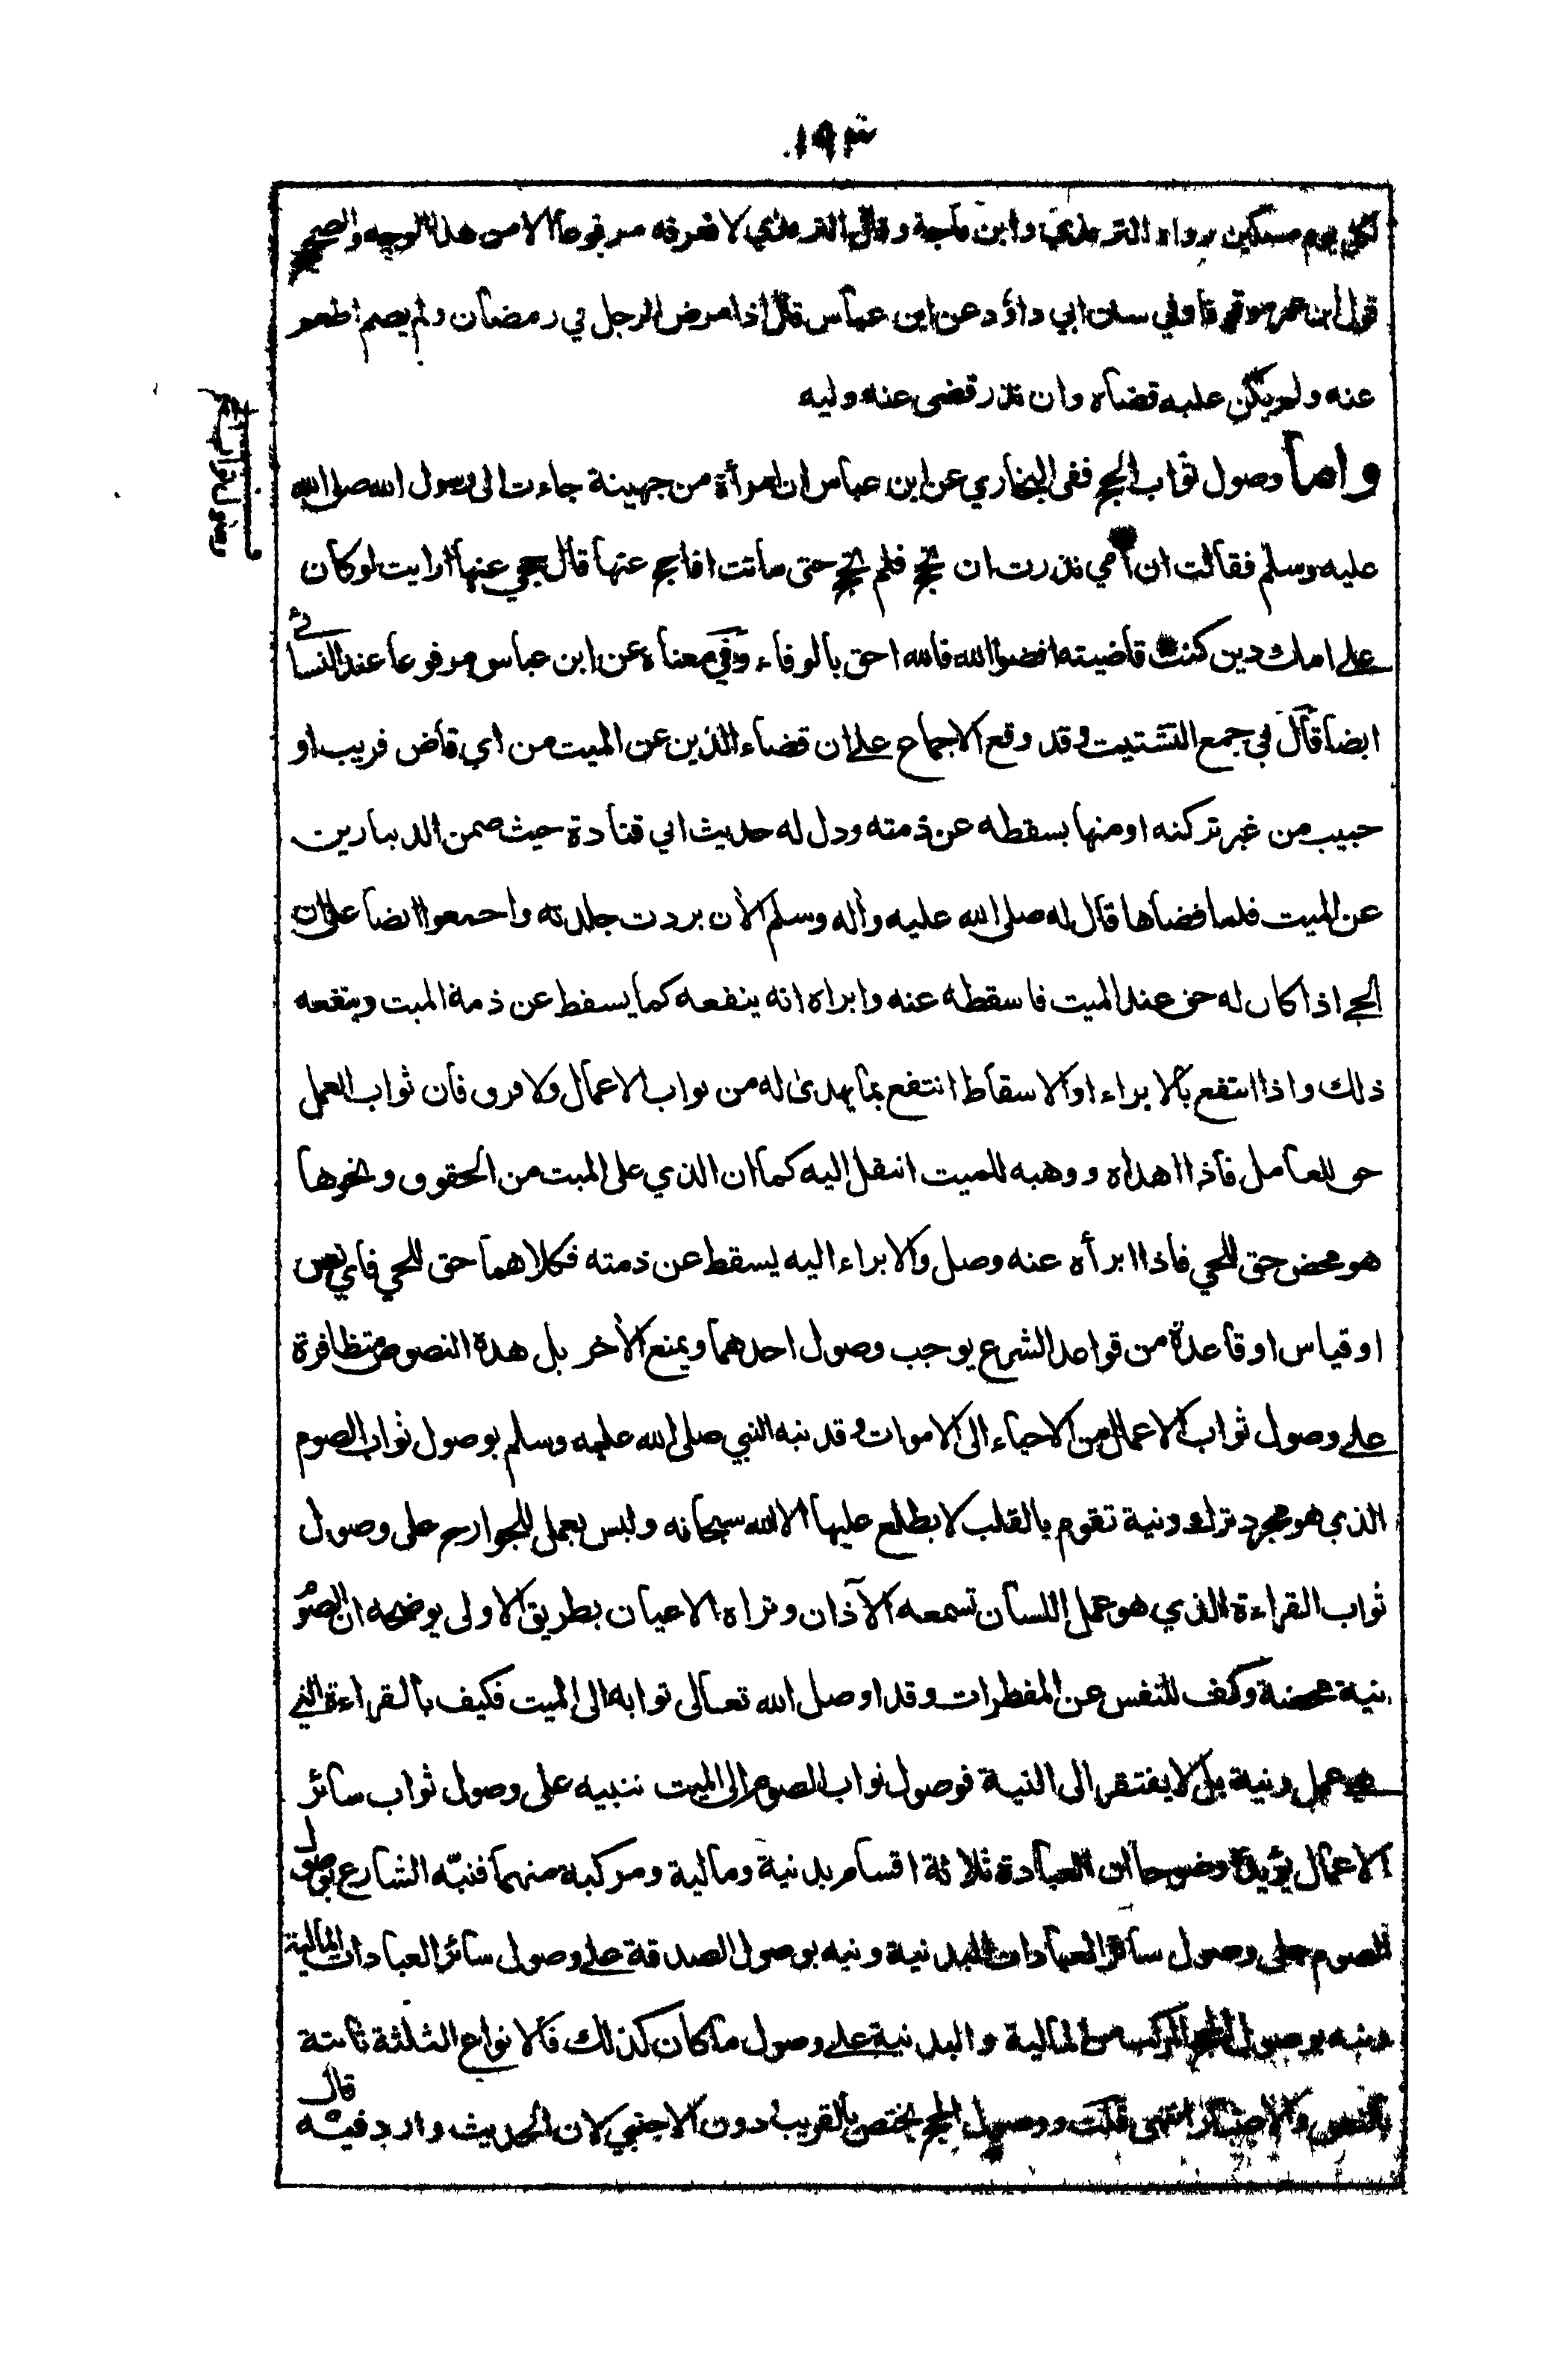 ١٩٣
لكل يوم مسكين رواه الترمذي وابن ماجة وقال الترمذي لا نعرفه مرفوعا الا من هذا الوجه والصحيح
قول ابن عمر موقوفا وفي سنن ابي داؤد عن ابن عباس قال اذا مرض الرجل في رمضان ولم يصم اطعم
عنه ولم يكن عليه قضاء وان نذر قضى عنه وليه
واما وصول ثواب الحج ففى البخاري عن ابن عباس ان امرأة من جهينة جاءت الى رسول الله صلى الله
عليه وسلم فقالت ان امي نذرت ان تحج فلم تحج حتى ماتت افاحج عنها قال حجي عنها ارايت لو كان
على امك دين كنت قاضيته اقضوا الله فالله احق بالوفاء وفي معناه عن ابن عباس مرفوعا عند النسائي
ايضا قال في جمع التشتيت وقد وقع الاجماع على ان قضاء الدين عن الميت من اي قاض قريب او
حبيب من غير تركته او منها يسقطه عن ذمته ودل له حديث ابي قتادة حيث ضمن الدينارين
عن الميت فلما قضاها قال له صلى الله عليه وآله وسلم الأن بردت جلدته واجمعوا ايضا على ان
الحي اذا كان له حق عند الميت فاسقطه عنه وابراه انه ينفعه كما يسقط عن ذمة الميت وينفعه
ذلك واذا انتفع بالابراء او الاسقاط انتفع بما يهدى له من ثواب الاعمال ولا فرق فان ثواب العمل
حق للعامل فاذا اهداه ووهبه للميت انتقل اليه كما ان الذي على الميت من الحقوق ونحوها
هو محض حق للحي فاذا ابرأه عنه وصل والابراء اليه يسقط عن ذمته فكلاهما حق للحي فاي نص
او قياس او قاعدة من قواعد الشرع يوجب وصول احدهما ويمنع الأخر بل هذه النصوص متظافرة
على وصول ثواب الاعمال من الاحياء الى الاموات وقد نبه النبي صلى الله عليه وسلم بوصول ثواب الصوم
الذي هو مجرد ترك ونية تقوم بالقلب لا يطلع عليها الا الله سبحانه وليس بعمل للجوارح على وصول
ثواب القراءة الذي هو عمل اللسان تسمعه الآذان وتراه الاعيان بطريق الاولى يوضحه ان الصوم
نية محضة وكف للنفس عن المفطرات وقد اوصل الله تعالى ثوابه الى الميت فكيف بالقراءة التي
هي عمل ونية بل لا يفتقر الى النية فوصول ثواب الصوم الى الميت تنبيه على وصول ثواب سائر
الاعمال يزيده وضوحا ان العبادة ثلاثة اقسام بدنية ومالية ومركبة منهما فنبّه الشارع بوصول
الصوم على وصول سائر العبادات البدنية ونبه بوصول الصدقة على وصول سائر العبادات المالية
ونبه بوصول الحج المركب من المالية والبدنية على وصول ما كان كذلك فالانواع الثلثة ثابتة
بالنص والاعتبار انتهى قلت ووصول الحج يختص بالقريب دون الاجنبي لان الحديث وارد فيه قال
وصول ثواب الحج